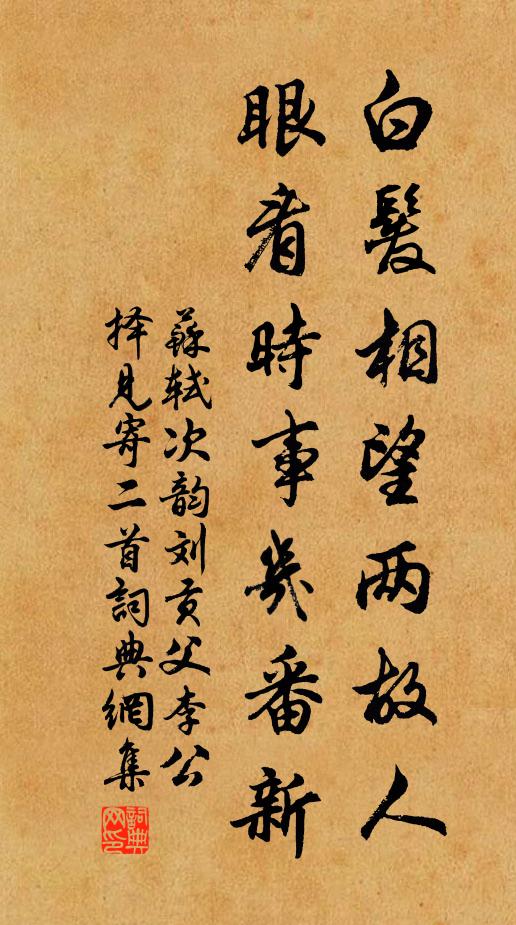 白髮相望两故人
眼看時事幾番新
蘇軾次韵刘贡父李公
择見寄二首詞典網集
詞典网印